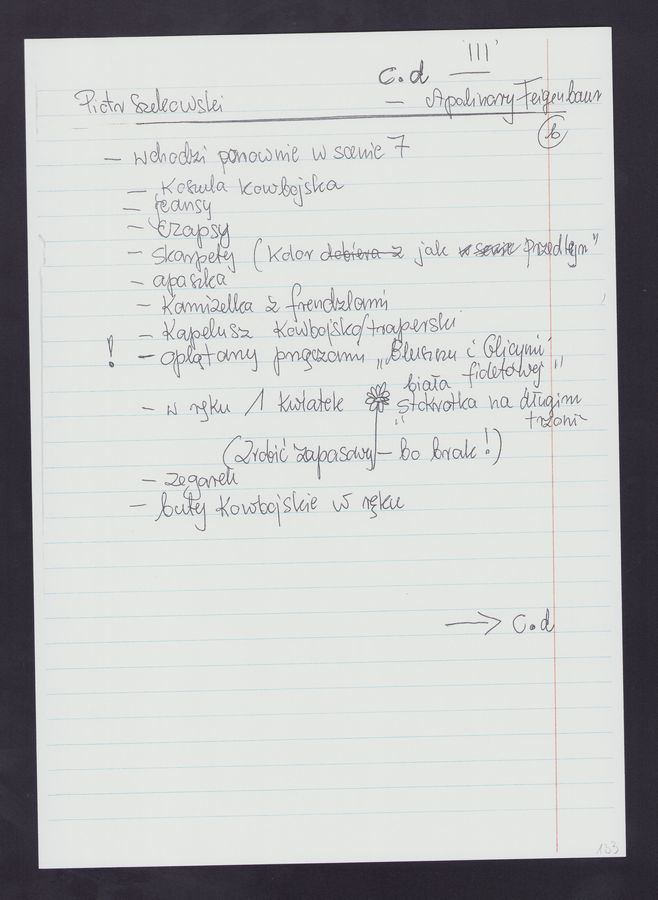 III
c.d
Piotr Szekowski — Apolinary Feigenbaum
b
— wchodzi ponownie w scenie 7
— Koszula kowbojska
— jeansy
— czapsy
— skarpety (kolor dobiera z jak w scenie przedtem"
— apaszka
— Kamizelka z frendzlami
— Kapelusz kowbojsko/traperski
! — oplątany pnączami „Bluszczu i Glicynii
biała fioletowej"
— w ręku 1 kwiatek „stokrotka na długim
trzonie
(Zrobić zapasowy — bo brak!)
— zegarek
— buty kowbojskie w ręku
→ c.d
133